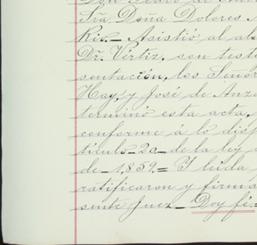 Don Pedro de
Sra Doña Dolores
Riz.= Asistió al
Dr. Vértiz, son test
sentación, los Señor
Hay, y José de Anz
terminó esta acta,
conforme á lo disp
tículo 2o de la ley
de 1,859= I leida
ratificaron y firma
sente Juez= Doy fé=